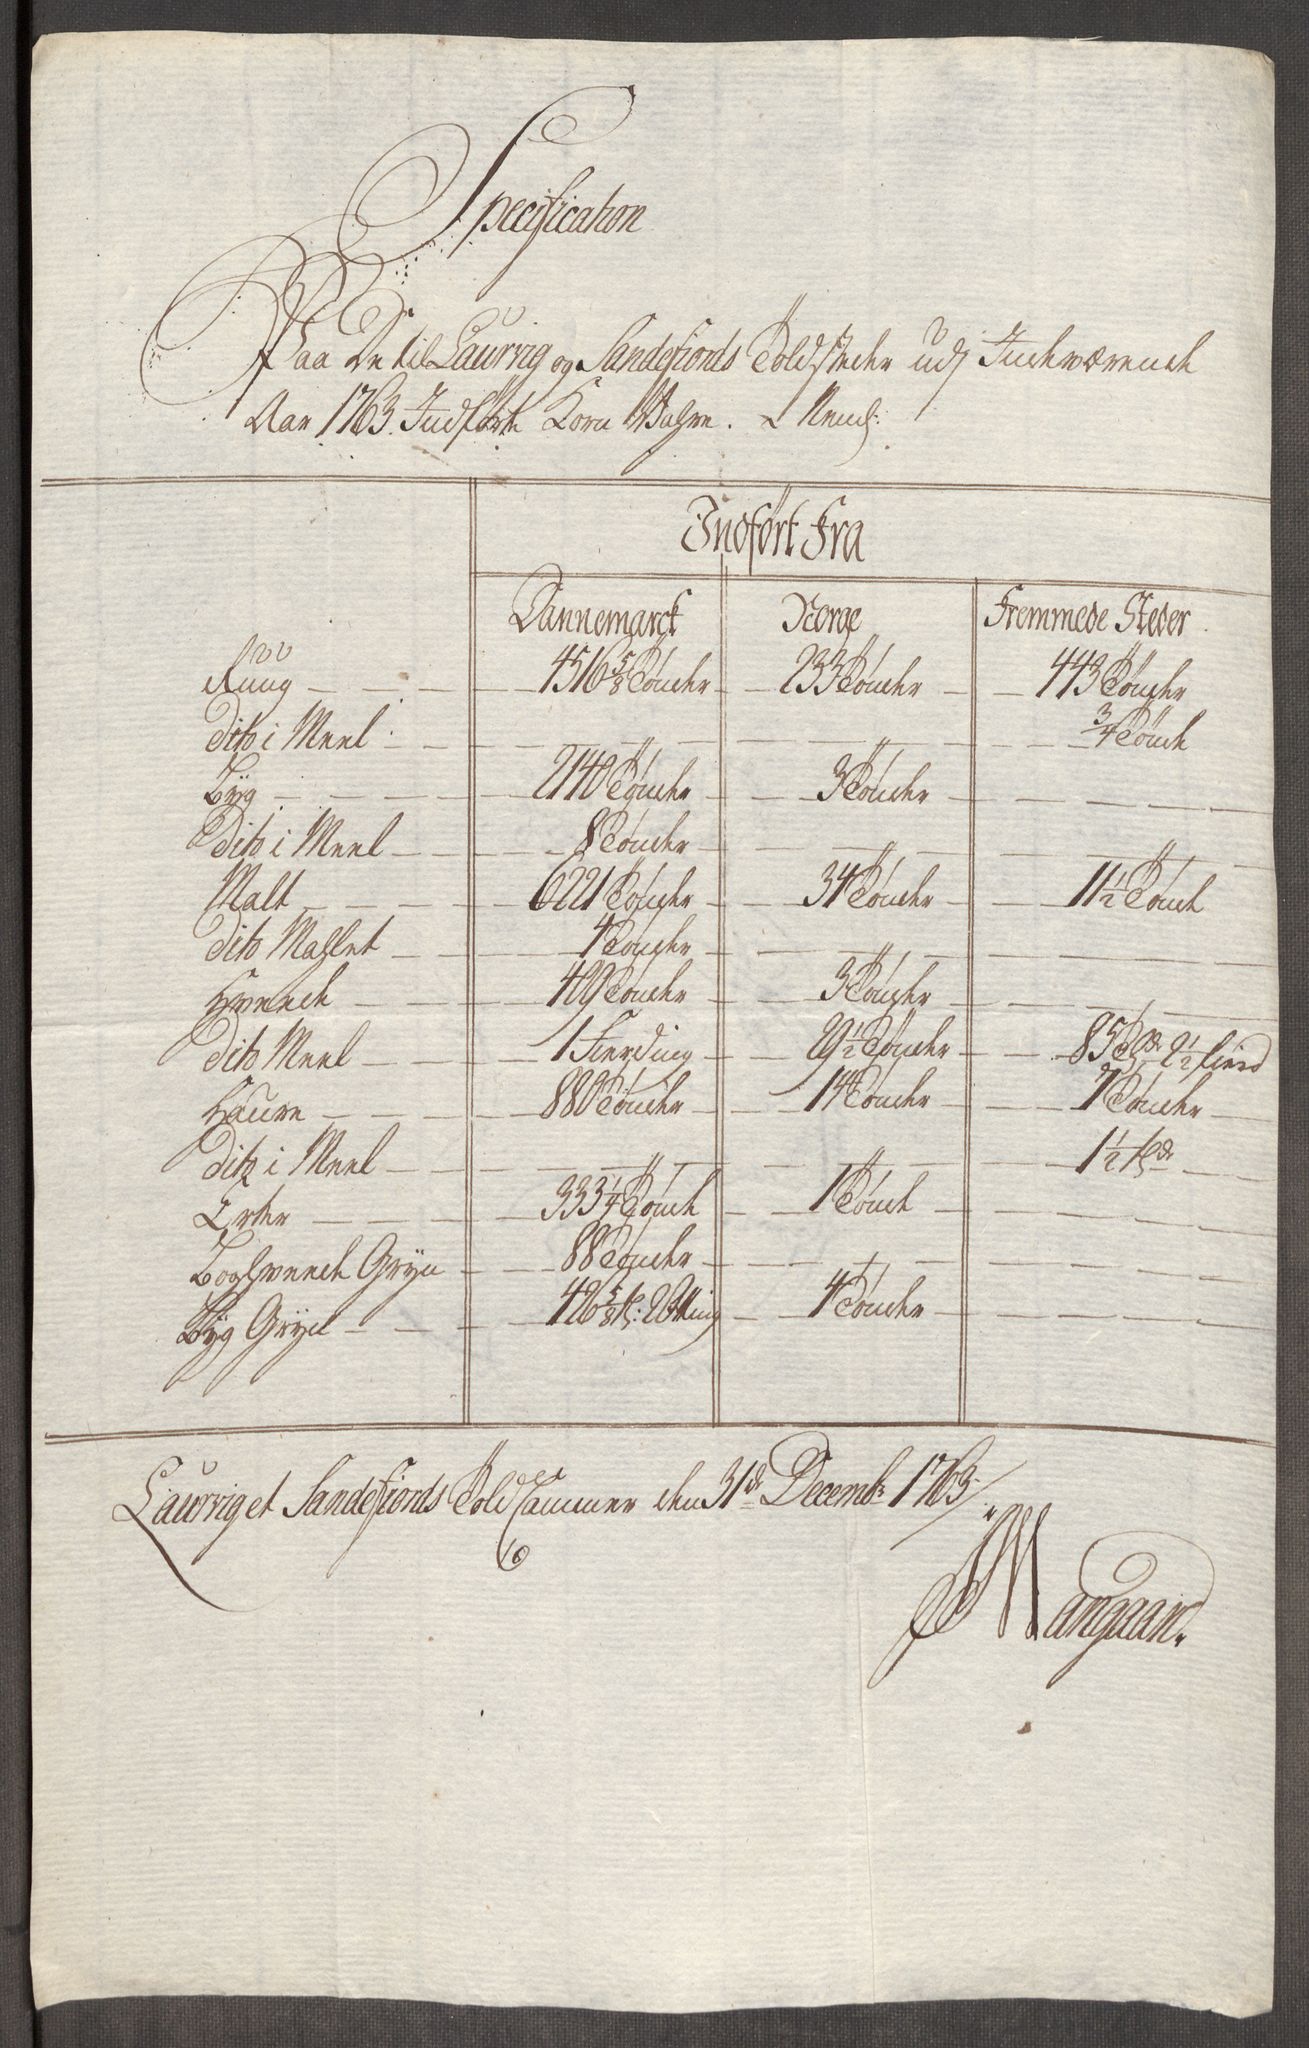 Specification
Paa De til Laurvig og Sandefiords Toldsteder udj Indeværende
Aar 1763. Indførte Korn Vahre. Neml:
Indført Fra
Dannemarck Norge Fremmede Steder
Rüug 4516 5/8 Tönder 233 Tönder 443 Tönder
dito i Meel 3/4 Tönde
Byg 2140 Tönder 3 Tönder
dito i Meel 8 Tönder
Malt 6221 Tönder 34 Tönder 11 1/2 Tönde
dito Mahlet 4 Tönder
Hveede 409 Tönder 3 Tönder
dito Meel 1 Fierding 29 1/2 Tönder 85 Tde 2 1/2 fierd
Haure 880 Tönder 14 Tönder 7 Tönder
dito i Meel 1 1/2 Tde
Erter 333 1/4 Tönde 1 Tönde
Boghveede Gryn 88 Tönder
Byg Gryn 426 5/8 T: 2 Otting 4 Tönder
Laurvig et Sandefiords Told Cammer den 31de Decembr 1763
Mangaard